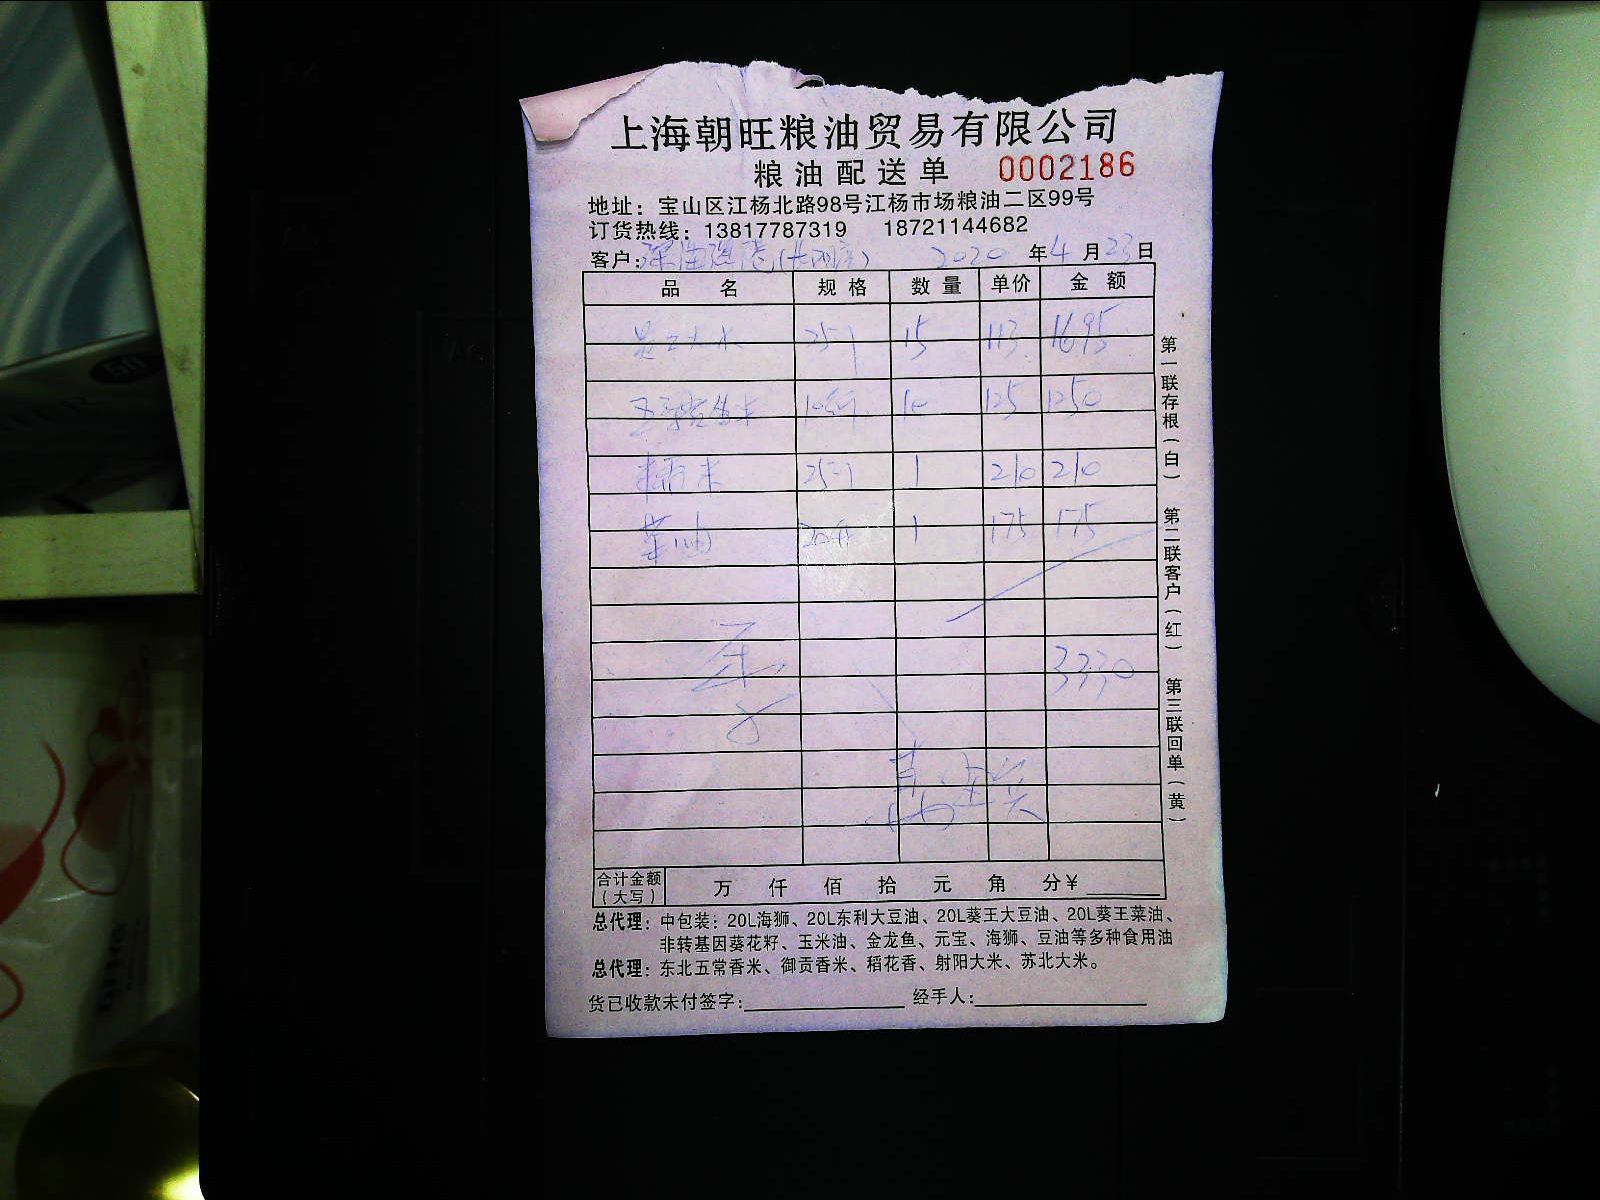 上海朝旺粮油贸易有限公司
粮油配送单 0002186
地址：宝山区江杨北路98号江杨市场粮油二区99号
订货热线：13817787319 18721144682
客户： 2020 年 4 月 23 日
品名 规格 数量 单价 金额
大米 25 15 113 1695
10 125 1250
糯米 25 1 210 210
菜油 20升 1 175 175
3330
合计金额（大写） 万 仟 佰 拾 元 角 分￥
总代理：中包装：20L海狮、20L东利大豆油、20L葵王大豆油、20L葵王菜油、
非转基因葵花籽、玉米油、金龙鱼、元宝、海狮、豆油等多种食用油
总代理：东北五常香米、御贡香米、稻花香、射阳大米、苏北大米。
货已收款未付签字： 经手人：
第一联存根（白） 第二联客户（红） 第三联回单（黄）
50